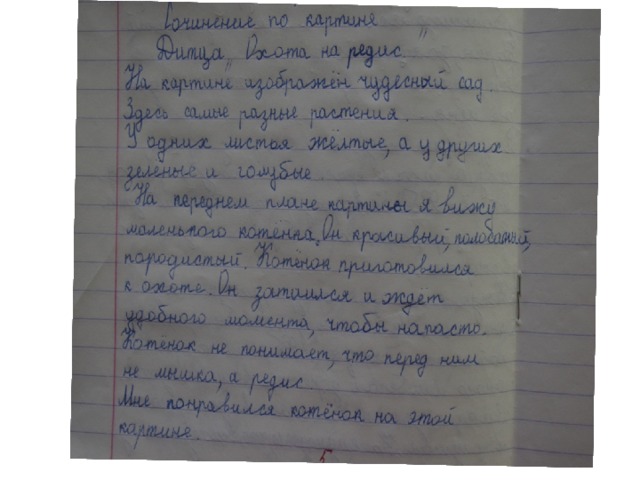 Сочинение по картине
Дитца „Охота на редис"
На картине изображён чудесный сад.
Здесь самые разные растения.
У одних листья жёлтые, а у других
зелёные и голубые.
На переднем плане картины я вижу
маленького котёнка. Он красивый, полосатый,
породистый. Котёнок приготовился
к охоте. Он затаился и ждёт
удобного момента, чтобы напасть.
Котёнок не понимает, что перед ним
не мышка, а редис.
Мне понравился котёнок на этой
картине.
5